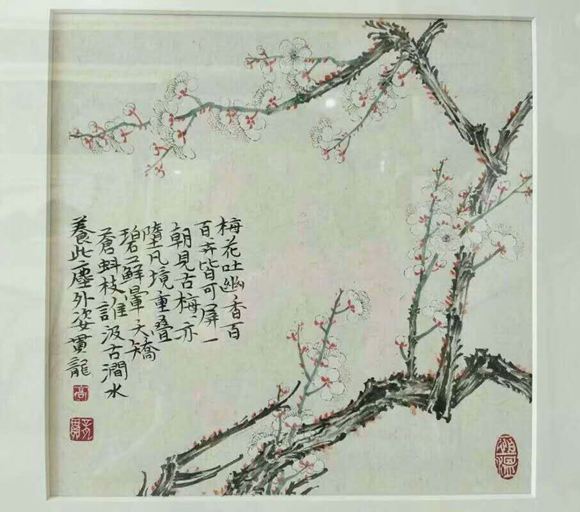 梅花吐幽香百
百卉皆可屏一
朝見古梅亦
墮凡境重疊
碧蘚暈夭矯
蒼蚪枝誰汲古澗水
養此塵外姿 龍